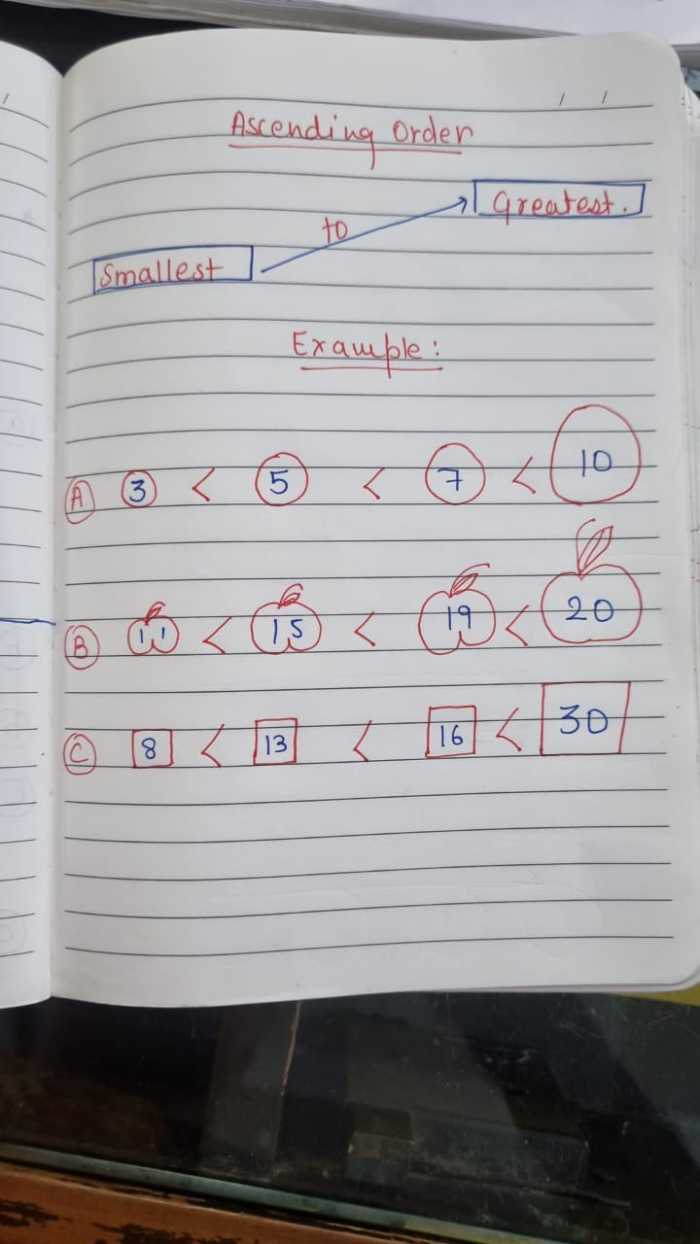 Ascending Order
Greatest.
to
Smallest
Example:
A 3 < 5 < 7 < 10
B 11 < 15 < 19 < 20
C 8 < 13 < 16 < 30